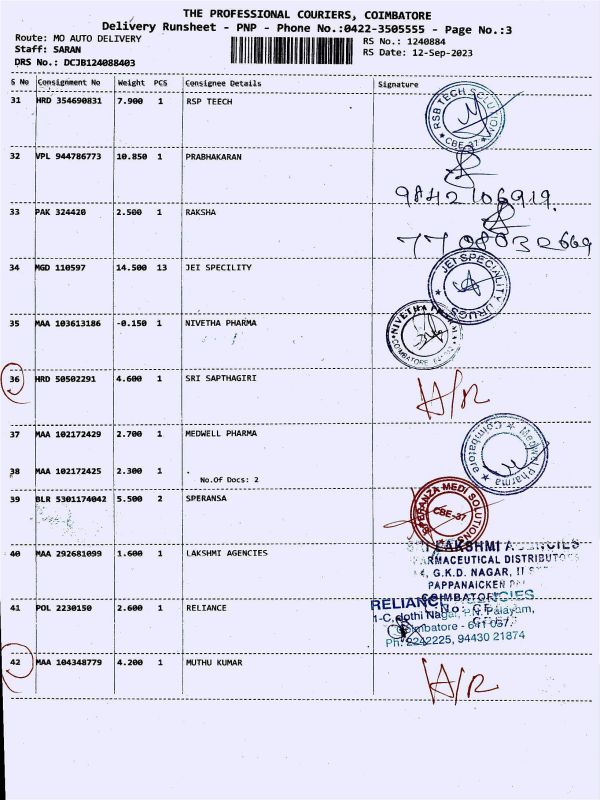 THE PROFESSIONAL COURIERS, COIMBATORE
Delivery Runsheet - PNP - Phone No.:0422-3505555 - Page No.:3
Route: MO AUTO DELIVERY
RS No.: 1240884
Staff: SARAN
RS Date: 12-Sep-2023
DRS No.: DCJB124088403
S No Consignment No Weight PCS Consignee Details Signature
31 HRD 354690831 7.900 1 RSP TEECH
RSB TECH SOLUTION
CBE-37
32 VPL 944786773 10.850 1 PRABHAKARAN
9842106919.
33 PAK 324420 2.500 1 RAKSHA
7708032669
34 MGD 110597 14.500 13 JEI SPECILITY
JEI SPECIALITY DRUGS
35 MAA 103613186 -0.150 1 NIVETHA PHARMA
NIVETHA PHARMA
COIMBATORE
36 HRD 50502291 4.600 1 SRI SAPTHAGIRI
H/R
37 MAA 102172429 2.700 1 MEDWELL PHARMA
Medwell Pharma
Coimbatore
38 MAA 102172425 2.300 1 .
No.Of Docs: 2
39 BLR 5301174042 5.500 2 SPERANSA
SPERANZA MEDI SOLUTIONS
CBE-37
40 MAA 292681099 1.600 1 LAKSHMI AGENCIES
LAKSHMI AGENCIES
PHARMACEUTICAL DISTRIBUTORS
G.K.D. NAGAR,
PAPPANAICKEN
COIMBATORE
41 POL 2230150 2.600 1 RELIANCE
RELIANCE AGENCIES
1-C, Jothi Nagar, P.N. Palayam,
Coimbatore - 641 037.
Ph: 2242225, 94430 21874
42 MAA 104348779 4.200 1 MUTHU KUMAR
H/R